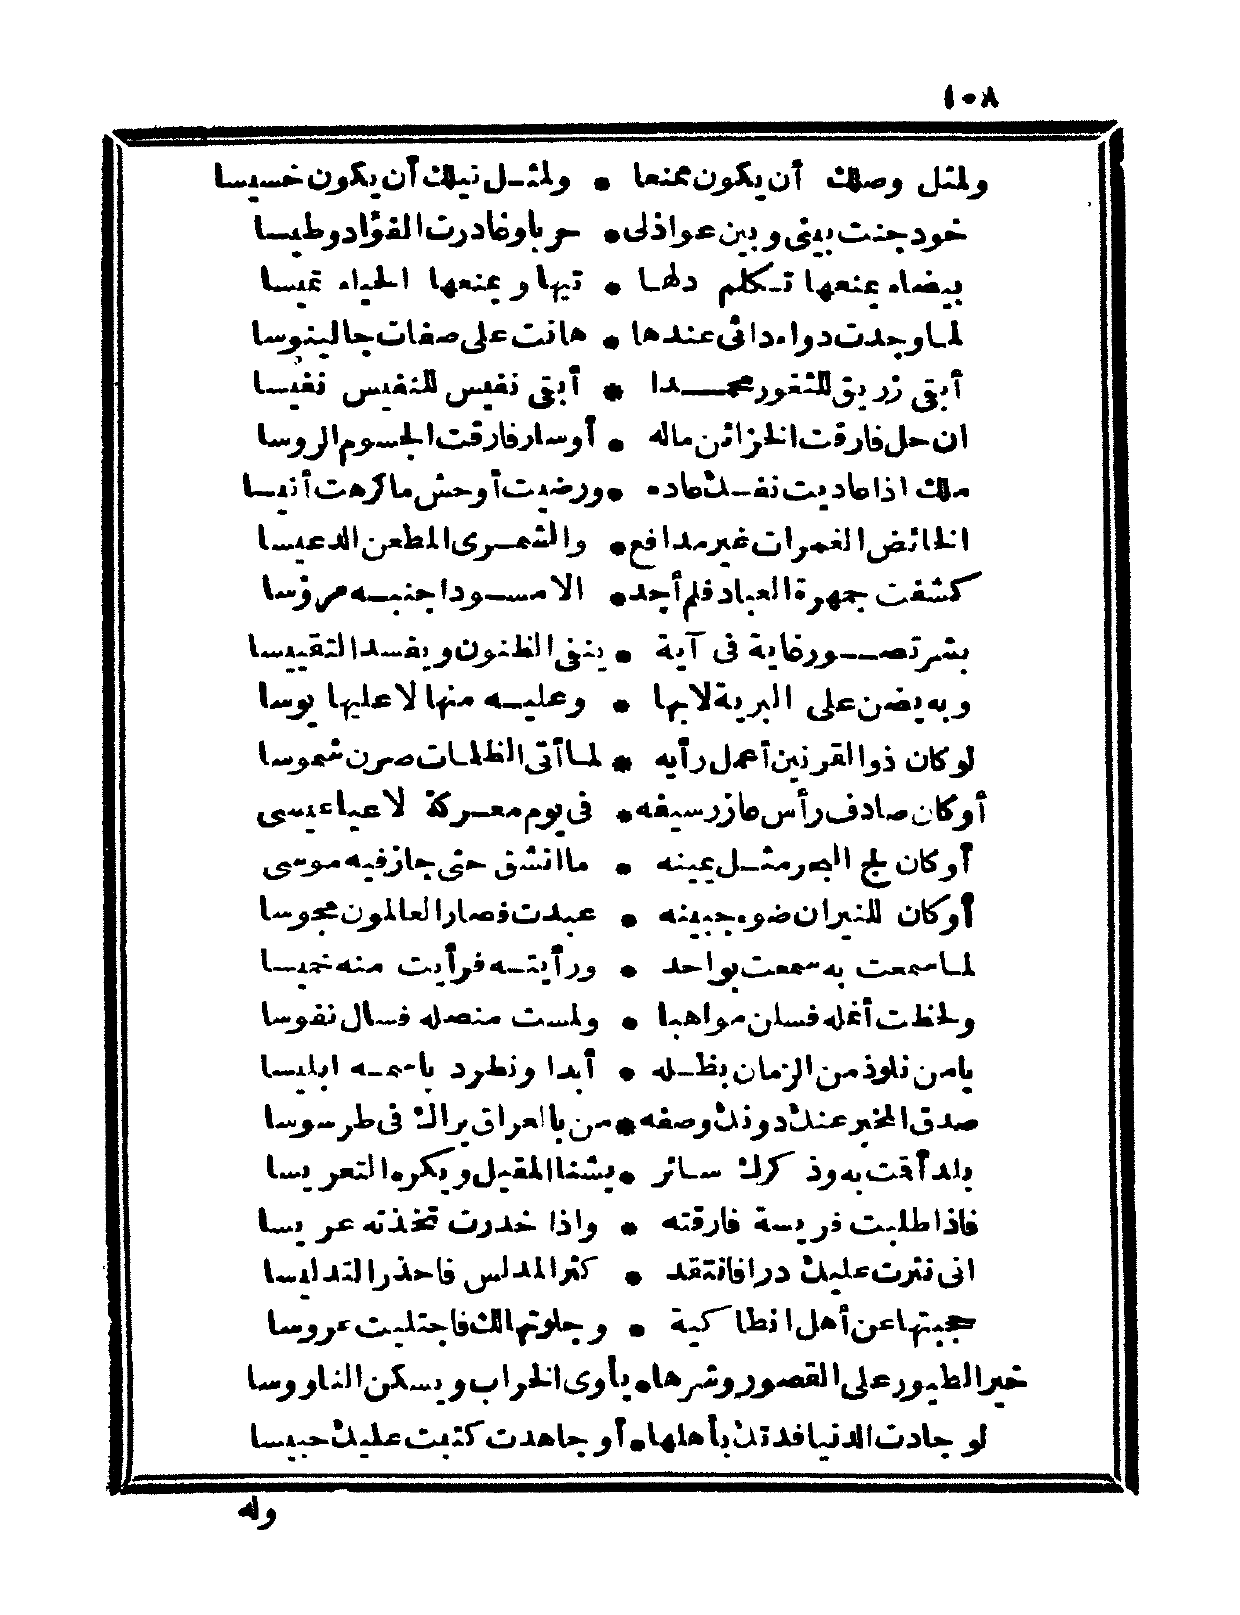 ١٠٨
ولمثل وصلك أن يكون ممنعا * ولمثـل نيلك أن يكون خسيسا
خود جنت بيني وبين عواذلي * حربا وغادرت الفؤاد وطيسا
بيضاء يمنعها تـكلم دلهـا * تيها ويمنعها الحياء تميسا
لمـا وجدت دواء دائى عندها * هانت على صفات جالينوسا
أبقى زريق للثغور محمـــدا * أبقى نفيس للنفيس نفيسا
ان حل فارقت الخزائن ماله * أوسار فارقت الجسوم الروسا
ملك اذا عاديت نفـسك عاده * ورضيت أوحش ما كرهت أنيسا
الخائض الغمرات غير مدافع * والشمـرى المطعن الدعيسا
كشفت جمهرة العباد فلم أجد * الا مســودا جنبـه مرؤسا
بشر تصـــور غاية فى آية * ينفى الظنون ويفسد التقييسا
وبه يضن على البرية لا بها * وعليـه منها لا عليها يوسا
لو كان ذوالقرنين أعمل رأيه * لمـا أتى الظلمـات صرن شموسا
أوكان صادف رأس عازر سيفه * فى يوم معـركة لا عيا عيسى
أوكان لج البحر مثـل يمينه * ما انشق حتى جاز فيه موسى
أوكان للنيران ضوء جبينه * عبدت فصار العالمون مجوسا
لمـا سمعت به سمعت بواحد * ورأيتـه فرأيت منه خميسا
ولحظت أنمله فسلن مواهبا * ولمست منصله فسال نفوسا
يامن نلوذ من الزمان بظـله * أبدا ونطرد باسمـه ابليسا
صدق المخبر عنك دونك وصفه * من بالعراق يراك فى طرسوسا
بلد أقت به وذ كرك سـائر * يشنا المقيل ويكره التعريسا
فاذا طلبت فريسة فارقته * واذا خدرت تخذته عريسا
انى نثرت عليك درا فانتقد * كثر المدلس فاحذر التدليسا
حجبتها عن أهل انطاكية * وجلوتها لك فاجتليت عروسا
خير الطيور على القصور وشرها * يأوى الخراب ويسكن الناووسا
لو جادت الدنيا فدتك بأهلها * أو جاهدت كتبت عليك حبيسا
وله